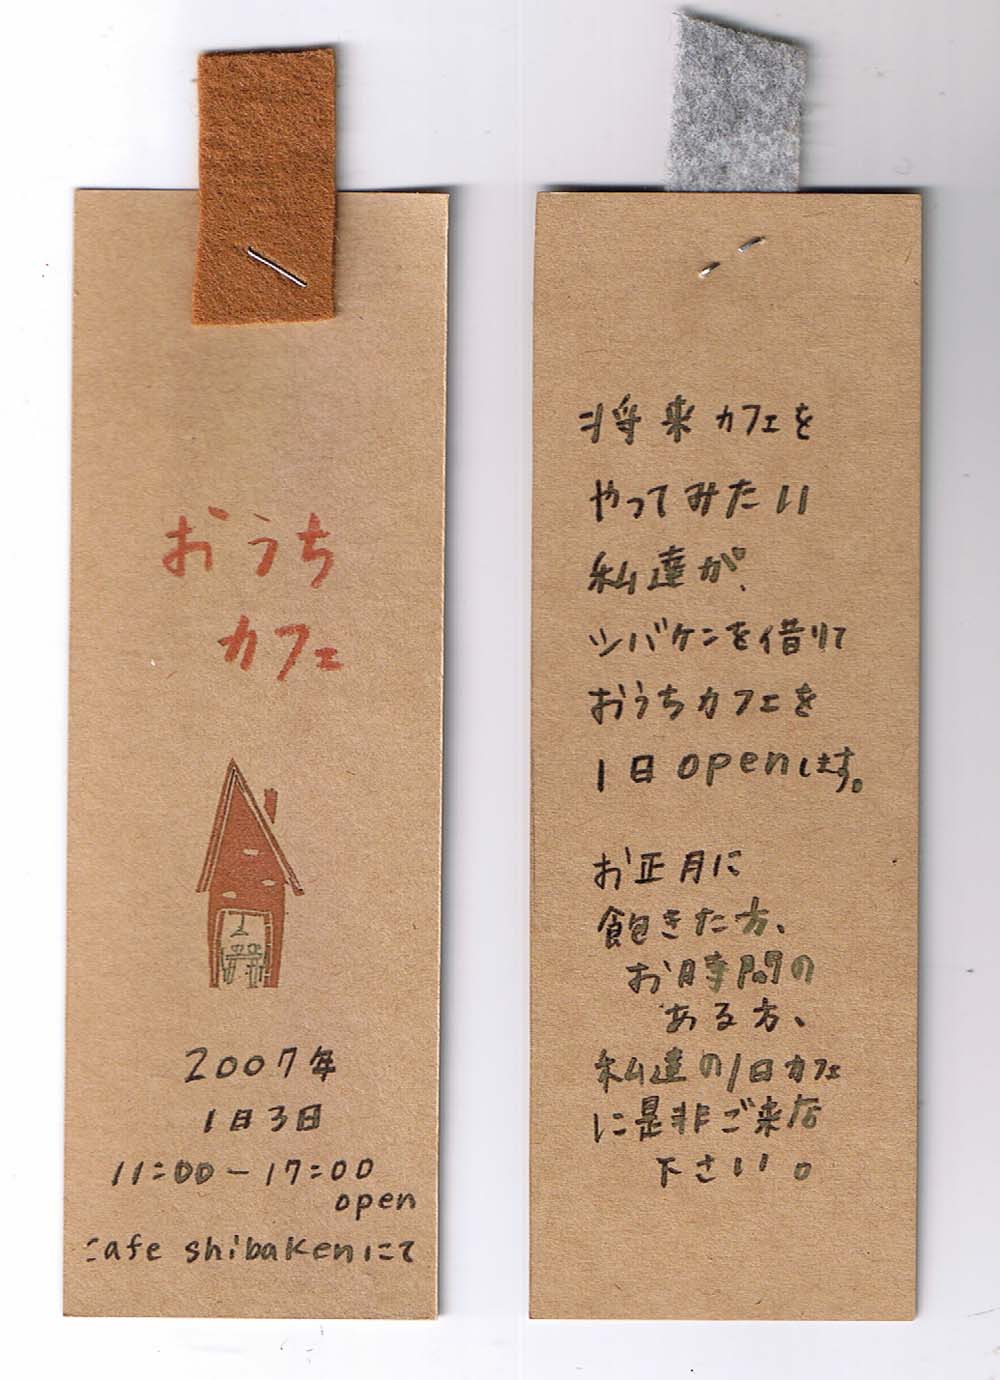 おうち
カフェ
2007年
1月3日
11:00-17:00
open
cafe shibakenにて
将来カフェを
やってみたい
私達が、
シバケンを借りて
おうちカフェを
1日openします。
お正月に
飽きた方、
お時間の
ある方、
私達の1日カフェ
に是非ご来店
下さい。